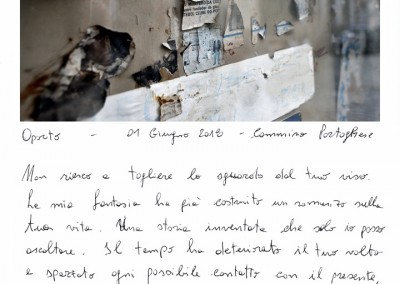 Oporto - 01 Giugno 2012 - Cammino Portoghese
Non riesco a togliere lo sguardo dal tuo viso.
La mia fantasia ha già costruito un romanzo sulla
tua vita. Una storia inventata che solo io posso
ascoltare. Il tempo ha deteriorato il tuo volto
e spezzato ogni possibile contatto con il presente,